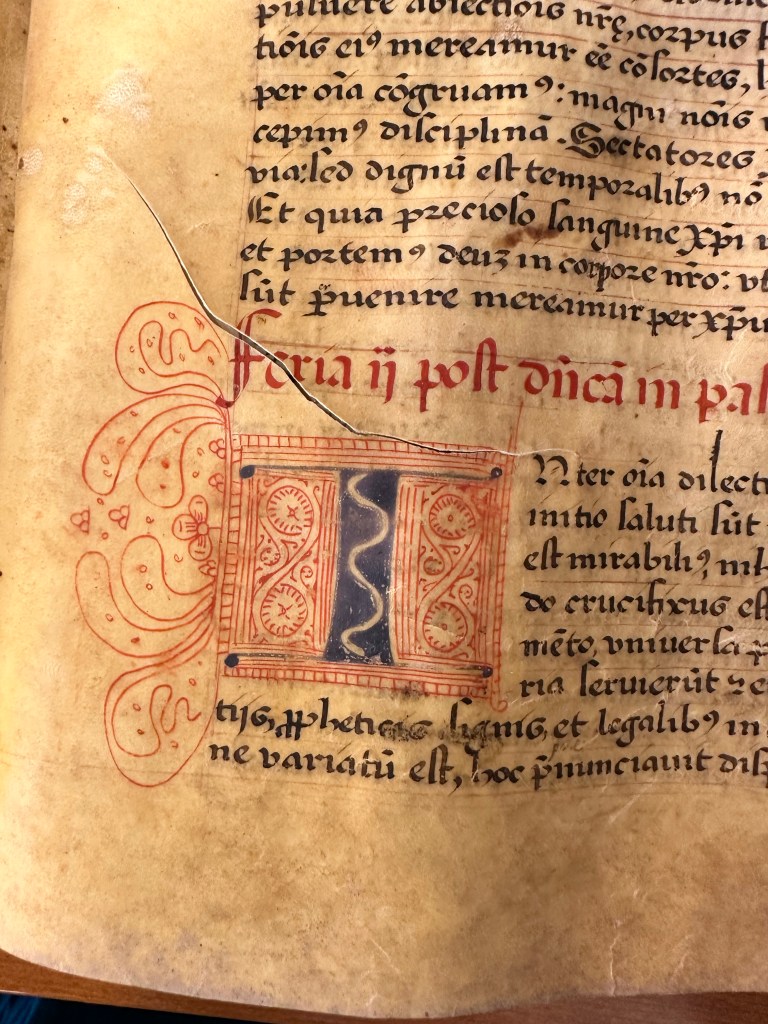 puluere abiectiõis nr̃ę, corpus
tiõis eiꝰ mereamur ẽe cõsortes,
per oĩa cõgruamꝰ: magni nõis
cepimꝰ disciplinã. Sectatores
via: sed dignũ est temporalibꝰ nõ
Et quia precioso sanguine xp̃i
et portemꝰ deuz in corpore nr̃o: vt
sũt p̱uenire mereamur per xp̃u
Feria ij post dñicã in pas
INter oĩa dilecti
initio saluti sũt
est mirabiliꝰ, nil
do crucifixus est
mẽto, vniuersa
ria seruierũt ⁊
tijs, ꝓpheticis signis, et legalibꝰ in
ne variatũ est, hoc p̃nunciauit disp